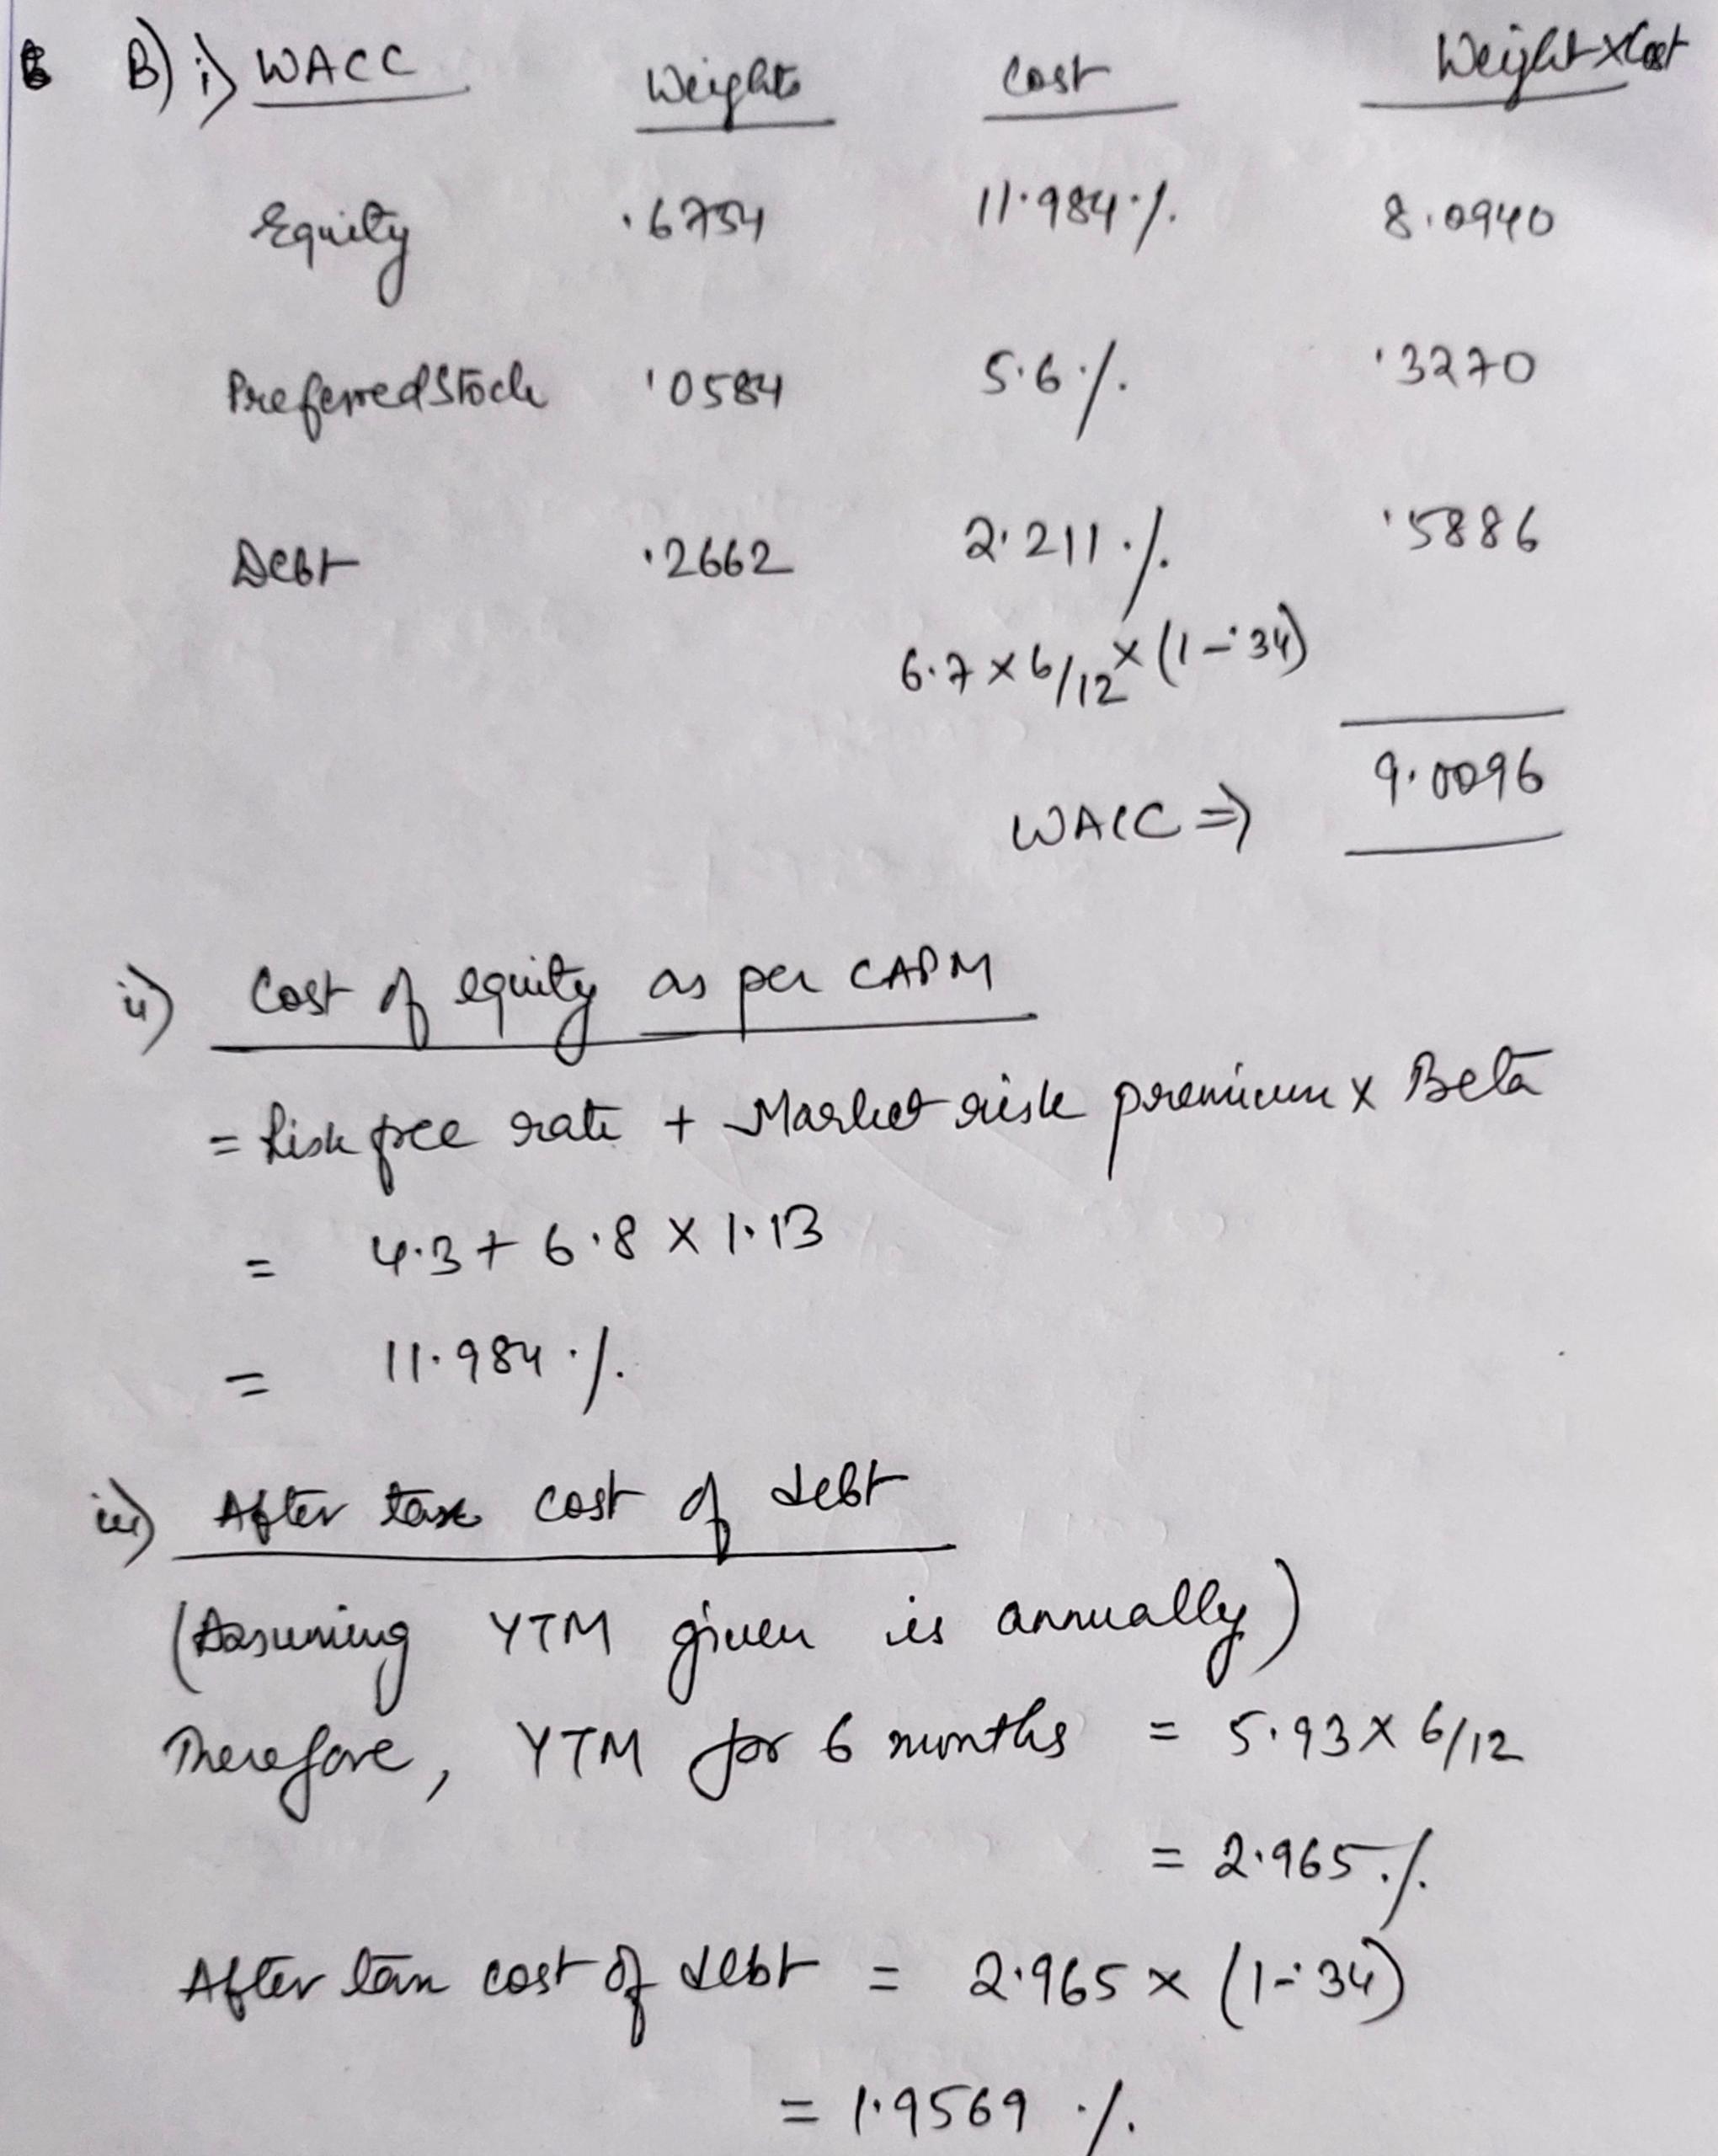 B) i) WACC Weights Cost Weight x Cost
Equity .6754 11.984% 8.0940
Preferred Stock .0584 5.6% .3270
Debt .2662 2.211% .5886
6.7 x 6/12 x (1-.34)
WACC ⇒ 9.0096
ii) Cost of equity as per CAPM
= Risk free rate + Market risk premium x Beta
= 4.3 + 6.8 x 1.13
= 11.984%
iii) After tax cost of debt
(Assuming YTM given is annually)
Therefore, YTM for 6 months = 5.93 x 6/12
= 2.965%
After tax cost of debt = 2.965 x (1-.34)
= 1.9569 %